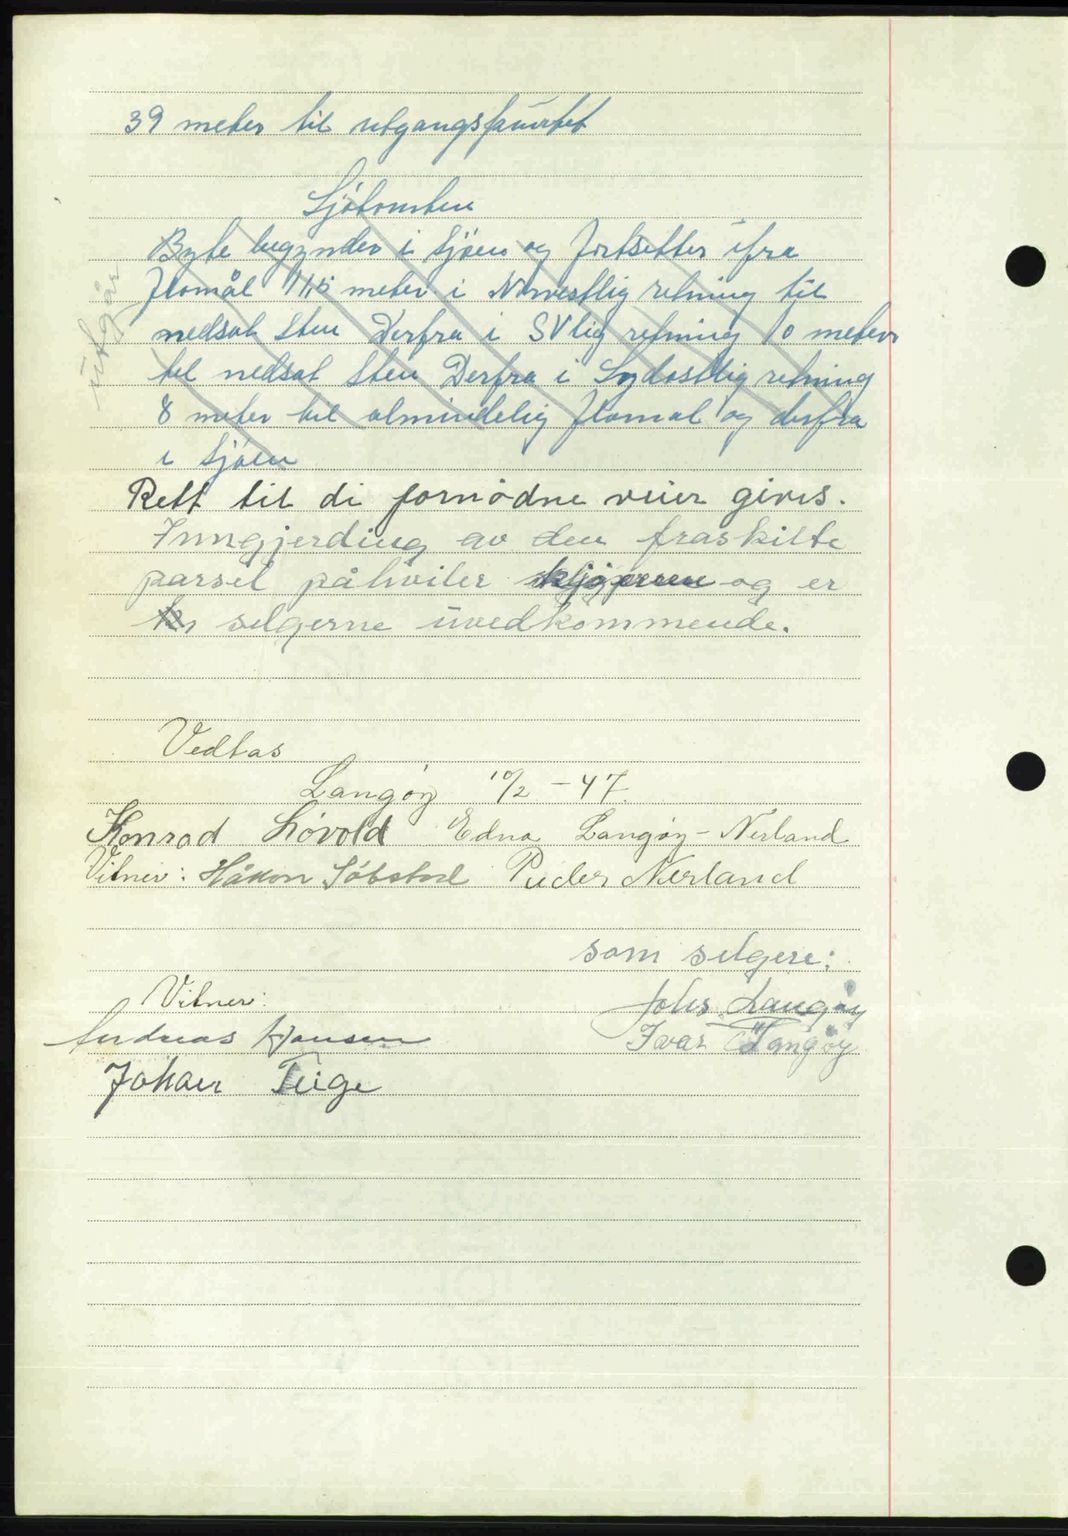 39 meter til utgangspunktet
Sjötomten
Byte begynder i Sjöen og fortsetter ifra
utgår
Flomål 11,5 meter i Norvestlig retning til
nedsat Sten Derfra i SVlig retning 10 meter
til nedsat Sten Derfra i Sydostlig retning
8 meter til almindelig Flomål og derfra
i Sjöen
Rett til di fornödne veier gives.
Inngjerding av den fraskilte
parsel påhviler kjöperen og er
selgerne uvedkommende.
Vedtas
Langöy 10/2 - 47.
Konrad Lövold Edna Langöy - Nerland
Vitner: Håkon Peder Nerland
som selgere:
Vitner: Johs. Langöy
Andreas Hansen Ivar Langöy
Johan Teige